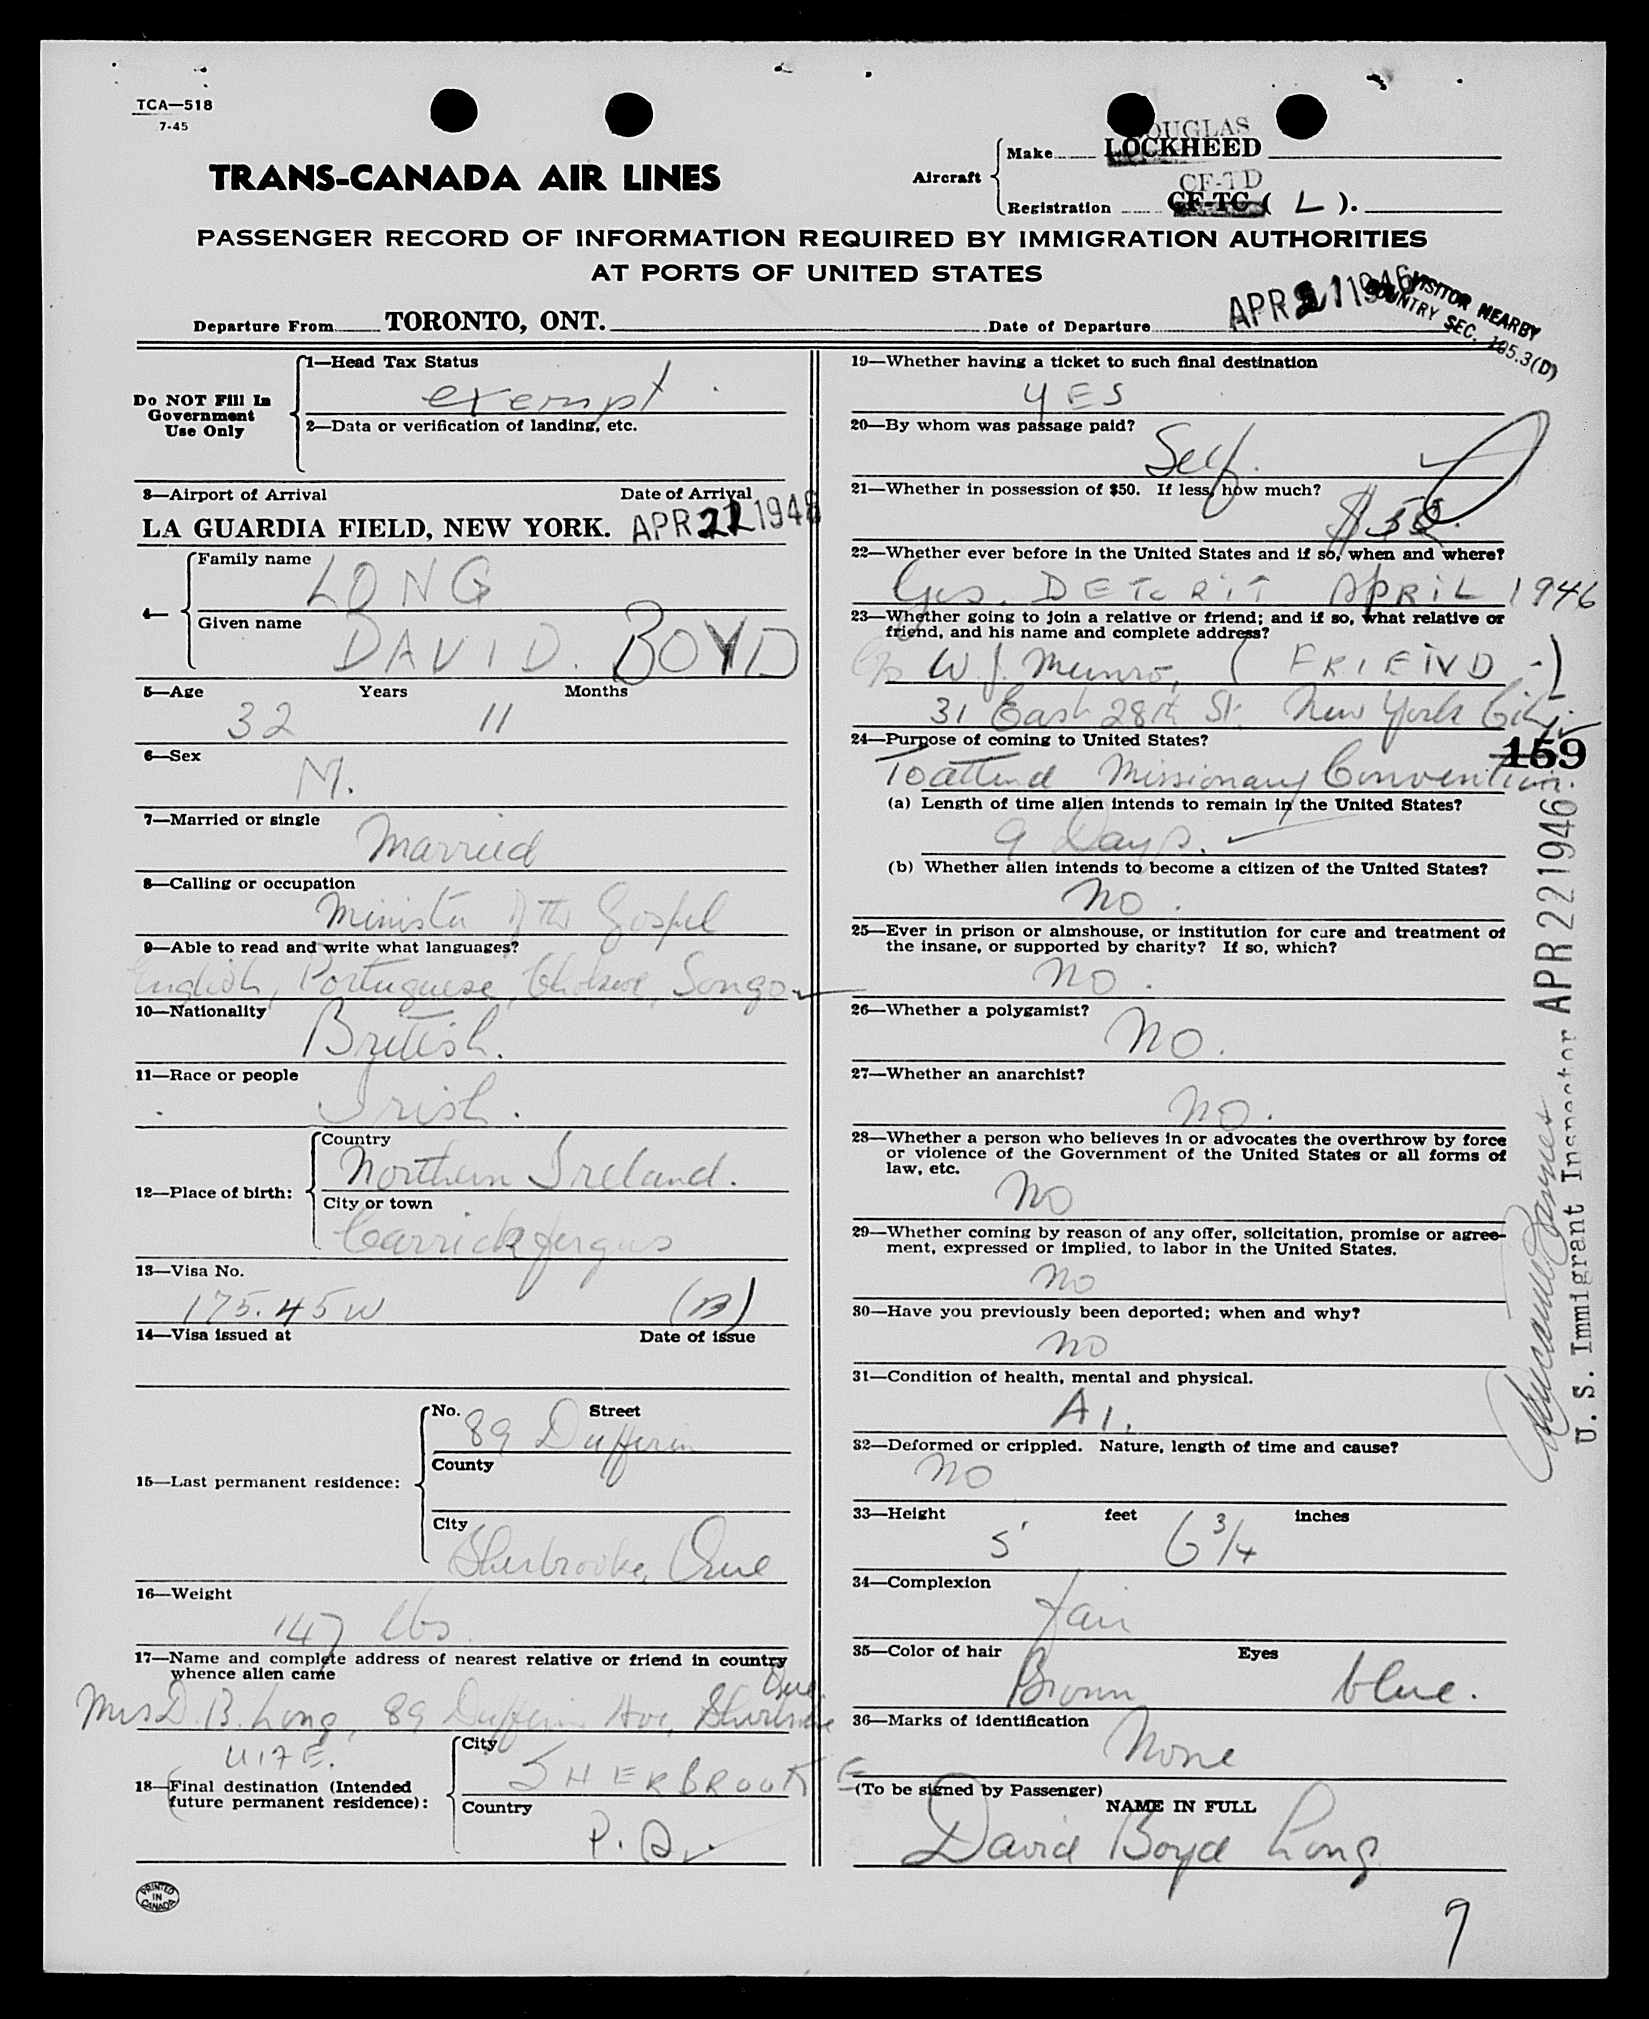 TCA—518
7-45
DOUGLAS
Make LOCKHEED
TRANS-CANADA AIR LINES
Aircraft
CF-TD
Registration CF-TC ( L ).
PASSENGER RECORD OF INFORMATION REQUIRED BY IMMIGRATION AUTHORITIES
AT PORTS OF UNITED STATES
VISITOR NEARBY
COUNTRY SEC. 185.3(D)
Departure From TORONTO, ONT. Date of Departure APR 21 1946
Do NOT Fill In
Government
Use Only
1—Head Tax Status
exempt
2—Data or verification of landing, etc.
3—Airport of Arrival Date of Arrival
LA GUARDIA FIELD, NEW YORK. APR 22 1946
4—
Family name
LONG
Given name
DAVID. BOYD
5—Age Years Months
32 11
6—Sex
M.
7—Married or single
Married
8—Calling or occupation
Minister of the Gospel
9—Able to read and write what languages?
English, Portuguese, Chokwe, Songo
10—Nationality
British.
11—Race or people
Irish.
12—Place of birth:
Country
Northern Ireland.
City or town
Carrickfergus
13—Visa No.
175.45W (B)
14—Visa issued at Date of issue
15—Last permanent residence:
No. Street
89 Dufferin
County
City
Sherbrooke, Que
16—Weight
147 lbs
17—Name and complete address of nearest relative or friend in country
whence alien came
Que
Mrs D. B. Long, 89 Dufferin Ave, Sherbrooke
WIFE.
18—Final destination (Intended
future permanent residence):
City
SHERBROOKE
Country
P. Q.
PRINTED
IN
CANADA
19—Whether having a ticket to such final destination
YES
20—By whom was passage paid?
Self.
21—Whether in possession of $50. If less, how much?
$50.
22—Whether ever before in the United States and if so, when and where?
Yes. DETCRIT APRIL 1946
23—Whether going to join a relative or friend; and if so, what relative or
friend, and his name and complete address?
c/o W. J. Munro, ( FRIEND -)
31 East 28th St. New York City.
24—Purpose of coming to United States?
159
To attend Missionary Convention.
(a) Length of time alien intends to remain in the United States?
9 Days.
(b) Whether alien intends to become a citizen of the United States?
No.
25—Ever in prison or almshouse, or institution for care and treatment of
the insane, or supported by charity? If so, which?
No.
26—Whether a polygamist?
No.
27—Whether an anarchist?
No.
28—Whether a person who believes in or advocates the overthrow by force
or violence of the Government of the United States or all forms of
law, etc.
No
29—Whether coming by reason of any offer, solicitation, promise or agree-
ment, expressed or implied, to labor in the United States.
No
30—Have you previously been deported; when and why?
No
31—Condition of health, mental and physical.
A1.
32—Deformed or crippled. Nature, length of time and cause?
No
33—Height feet inches
5' 6 3/4
34—Complexion
fair
35—Color of hair Eyes
Brown blue.
36—Marks of identification
None
(To be signed by Passenger)
NAME IN FULL
David Boyd Long
9
U. S. Immigrant Inspector APR 22 1946